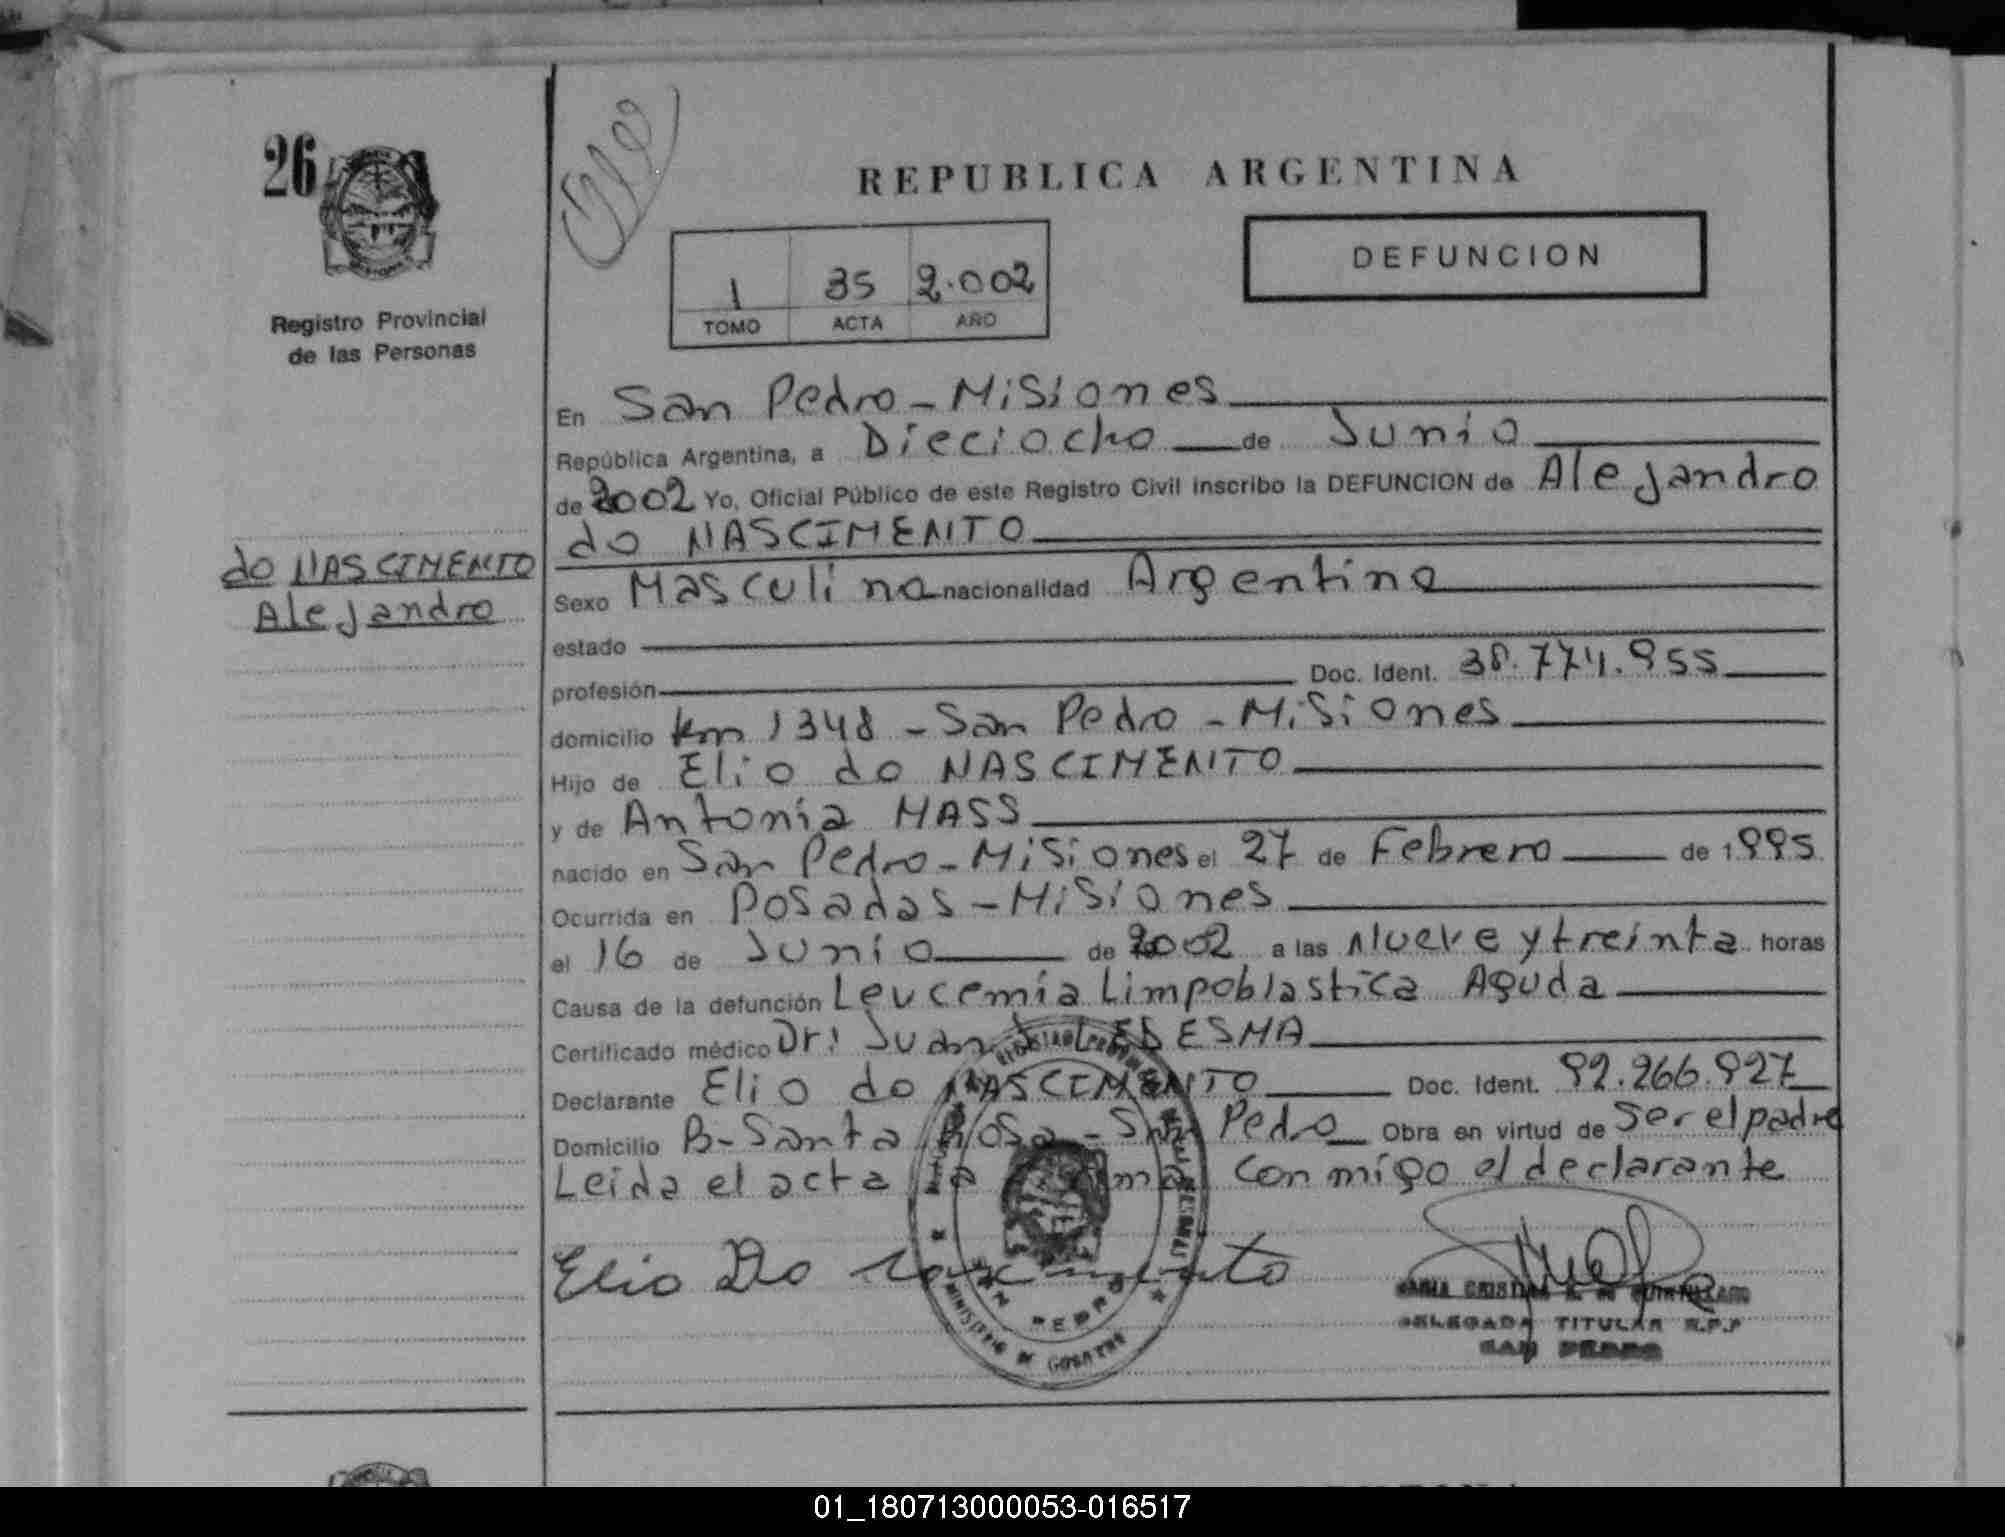 26
REPUBLICA ARGENTINA
DEFUNCION
1 35 2.002
TOMO ACTA AÑO
Registro Provincial
de las Personas
do NASCIMENTO
Alejandro
En San Pedro - Misiones
República Argentina, a Dieciocho de Junio
de 2002 Yo, Oficial Público de este Registro Civil inscribo la DEFUNCION de Alejandro
do NASCIMENTO
Sexo Masculino nacionalidad Argentino
estado
profesión Doc. Ident. 38.774.955
domicilio km 1348 - San Pedro - Misiones
Hijo de Elio do NASCIMENTO
y de Antonia MASS
nacido en San Pedro - Misiones el 27 de Febrero de 1995
Ocurrida en Posadas - Misiones
el 16 de Junio de 2002 a las Nueve y treinta horas
Causa de la defunción Leucemia Limpoblastica Aguda
Certificado médico Dr: Juan LEDESMA
Declarante Elio do NASCIMENTO Doc. Ident. 92.266.927
Domicilio B- Santa Rosa - San Pedro Obra en virtud de Ser el padre
Leida el acta la firma conmigo el declarante
Elio Do Nascimento
MARIA CRISTINA
DELEGADA TITULAR R.P.P
SAN PEDRO
SAN PEDRO
MINISTERIO DE GOBIERNO
01_180713000053-016517